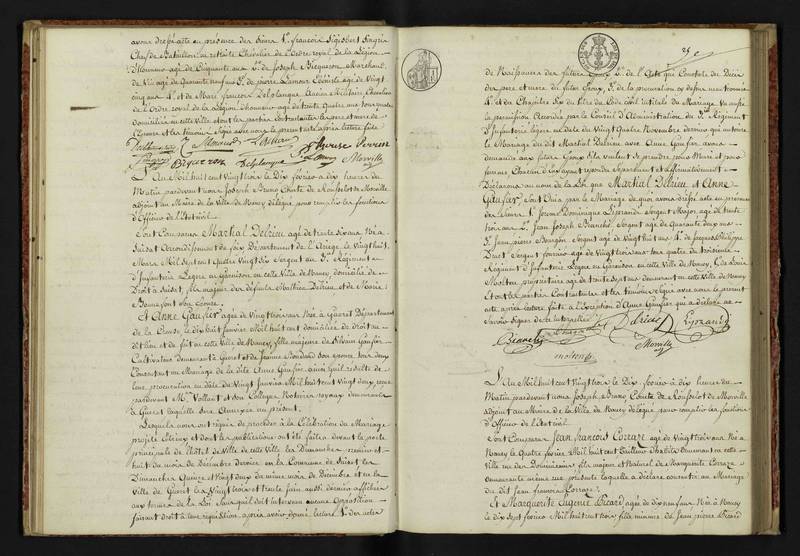 avons dressé acte en présence des Sieurs 1°. françois Sigisbert
Chef de Bataillon en retraite Chevalier de l'ordre royal de la Légion
d'honneur agé de Cinquante ans 2°. de Joseph Bicquezon Marchand
de Vin agé de Quarante neuf ans 3°. de pierre agé de vingt
cinq ans 4°. et de Marc françois Delplanque Ancien Militaire Chevalier
de l'Ordre royal de la Légion d'honneur agé de trente quatre ans tous
domiciliés en cette Ville et ont les parties contractantes les pere et mere de
l'Epouse et les témoins signé avec nous le present acte après lecture faite
Delplanque
Morville
L'An Mil huit cent Vingt trois le Dix fevrier à dix heures du
Matin pardevant nous Joseph Bruno Comte de Rousselot de Morville
adjoint au Maire de la Ville de Nancy délégué pour remplir les fonctions
d'Officier de l'Etat civil
Sont Comparus Martial Delrieu agé de trente six ans Né à
Saisat Arrondissement de foix Département de l'Ariège le vingt huit
Mars Mil Sept cent Quatre vingt six Sergent au 3e. Régiment
d'Infanterie Légère en Garnison en cette Ville de Nancy, domicilié de
Droit à Saisat fils majeur des défunts Mathieu Delrieu et de Marie
Bonnefont son Epouse
Et Anne Gaufier agée de Vingt trois ans Née à Gueret Département
de la Creuse le dix huit Janvier Mil huit cent domiciliée de droit au
dit lieu et de fait en cette Ville de Nancy, fille majeure de Silvain Gaufier
Cultivateur demeurant à Gueret et de Jeanne son epouse tous deux
Consentant au Mariage de la dite Anne Gaufier ainsi qu'il résulte de
leur procuration en date du Vingt Janvier Mil huit cent Vingt deux reçue
pardevant Me. Volland et son Collegue Notaires royaux demeurants
à Gueret laquelle sera Annexée au présent.
Lesquels nous ont requis de procéder à la Célébration du Mariage
projeté entr'eux et dont les publications ont été faites devant la porte
principale de l'hôtel de Ville de cette Ville les Dimanches premier et
huit du mois de Décembre dernier en la Commune de Saisat les
Dimanches Quinze et Vingt deux du même mois de Décembre et en la
Ville de Gueret les Vingt trois et trente Juin aussi dernier affichées
aux termes de la Loi sans qu'il soit intervenu aucune Opposition
faisant droit à leur réquisition, après avoir donné lecture 1°. des actes
de Naissance des futurs Epoux 2°. de l'Acte qui Constate le Décès
des pere et mere du futur Epoux 3°. de la procuration cy dessus mentionnée
4°. et du Chapitre Six du titre du Code civil intitulé du Mariage Vu aussi
la permission Accordée par le Conseil d'Administration du 3e. Régiment
d'Infanterie légère en date du Vingt Quatre Novembre dernier qui autorise
le Mariage du dit Martial Delrieu avec Anne Gaufier avons
demandé aux futurs Epoux s'ils veulent se prendre pour Mari et pour
femme Chacun d'eux ayant répondu séparément et affirmativement
Déclarons au nom de la Loi que Martial Delrieu et Anne
Gaufier Sont Unis par le Mariage de quoi avons dressé acte en présence
des Sieurs 1°. Jerome Dominique Leprand Sergent Major agé de trente
trois ans 2°. Jean Joseph Bianchi Sergent agé de Quarante deux ans
3°. Jean pierre Bourgon Sergent agé de Vingt huit ans 4°. de Jacques Philippe
Duez Sergent fourrier agé de vingt trois ans tous quatre du troisieme
Régiment d'Infanterie Légère en Garnison en cette Ville de Nancy,
propriétaire agé de trente Sept ans demeurant en cette Ville de Nancy
Et ont les parties Contractantes et les témoins signé avec nous le présent
acte après lecture faite à l'exception d'Anne Gaufier qui a déclaré ne
Savoir Signer de ce interpellée
Bianchi Delrieu
Morville
L'An Mil huit cent Vingt trois le Dix fevrier à dix heures du
Matin pardevant nous Joseph Bruno Comte de Rousselot de Morville
adjoint au Maire de la Ville de Nancy délégué pour remplir les fonctions
d'Officier de l'Etat civil
Sont Comparus Jean françois Corraze agé de Vingt trois ans Né à
Nancy le Quatre fevrier Mil huit cent Tailleur d'habits Demeurant en cette
Ville rue des Dominicains fils majeur et Naturel de Marguerite Corraze
Demeurante même rue présente laquelle a déclaré consentir au Mariage
du dit Jean françois Corraze
Et Marguerite Eugenie Picard agée de dix neuf ans Née à Nancy
le dix Sept fevrier Mil huit cent trois fille mineure de Jean pierre Picard